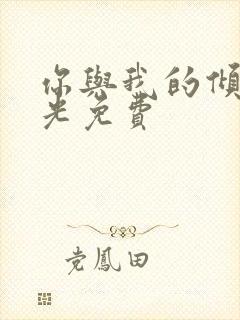 你與我的傾
光免費
党鳳田